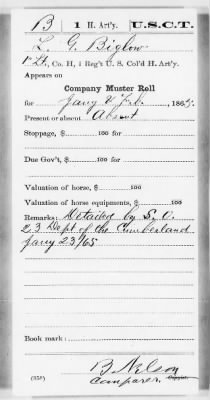 B 1 H. Art'y. U.S.C.T.
L. G. Biglow
1" Lt, Co. H, 1 Reg't U. S. Col'd H. Art'y.
Appears on
Company Muster Roll
for Jany & Feb., 1865.
Present or absent Absent
Stoppage, $ 100 for
Due Gov't, $ 100 for
Valuation of horse, $ 100
Valuation of horse equipments, $ 100
Remarks: Detailed by S.O.
23 Dept of the Cumberland
Jany 23/65
Book mark:
B. Nelson
(358) Comparer. Copyist.